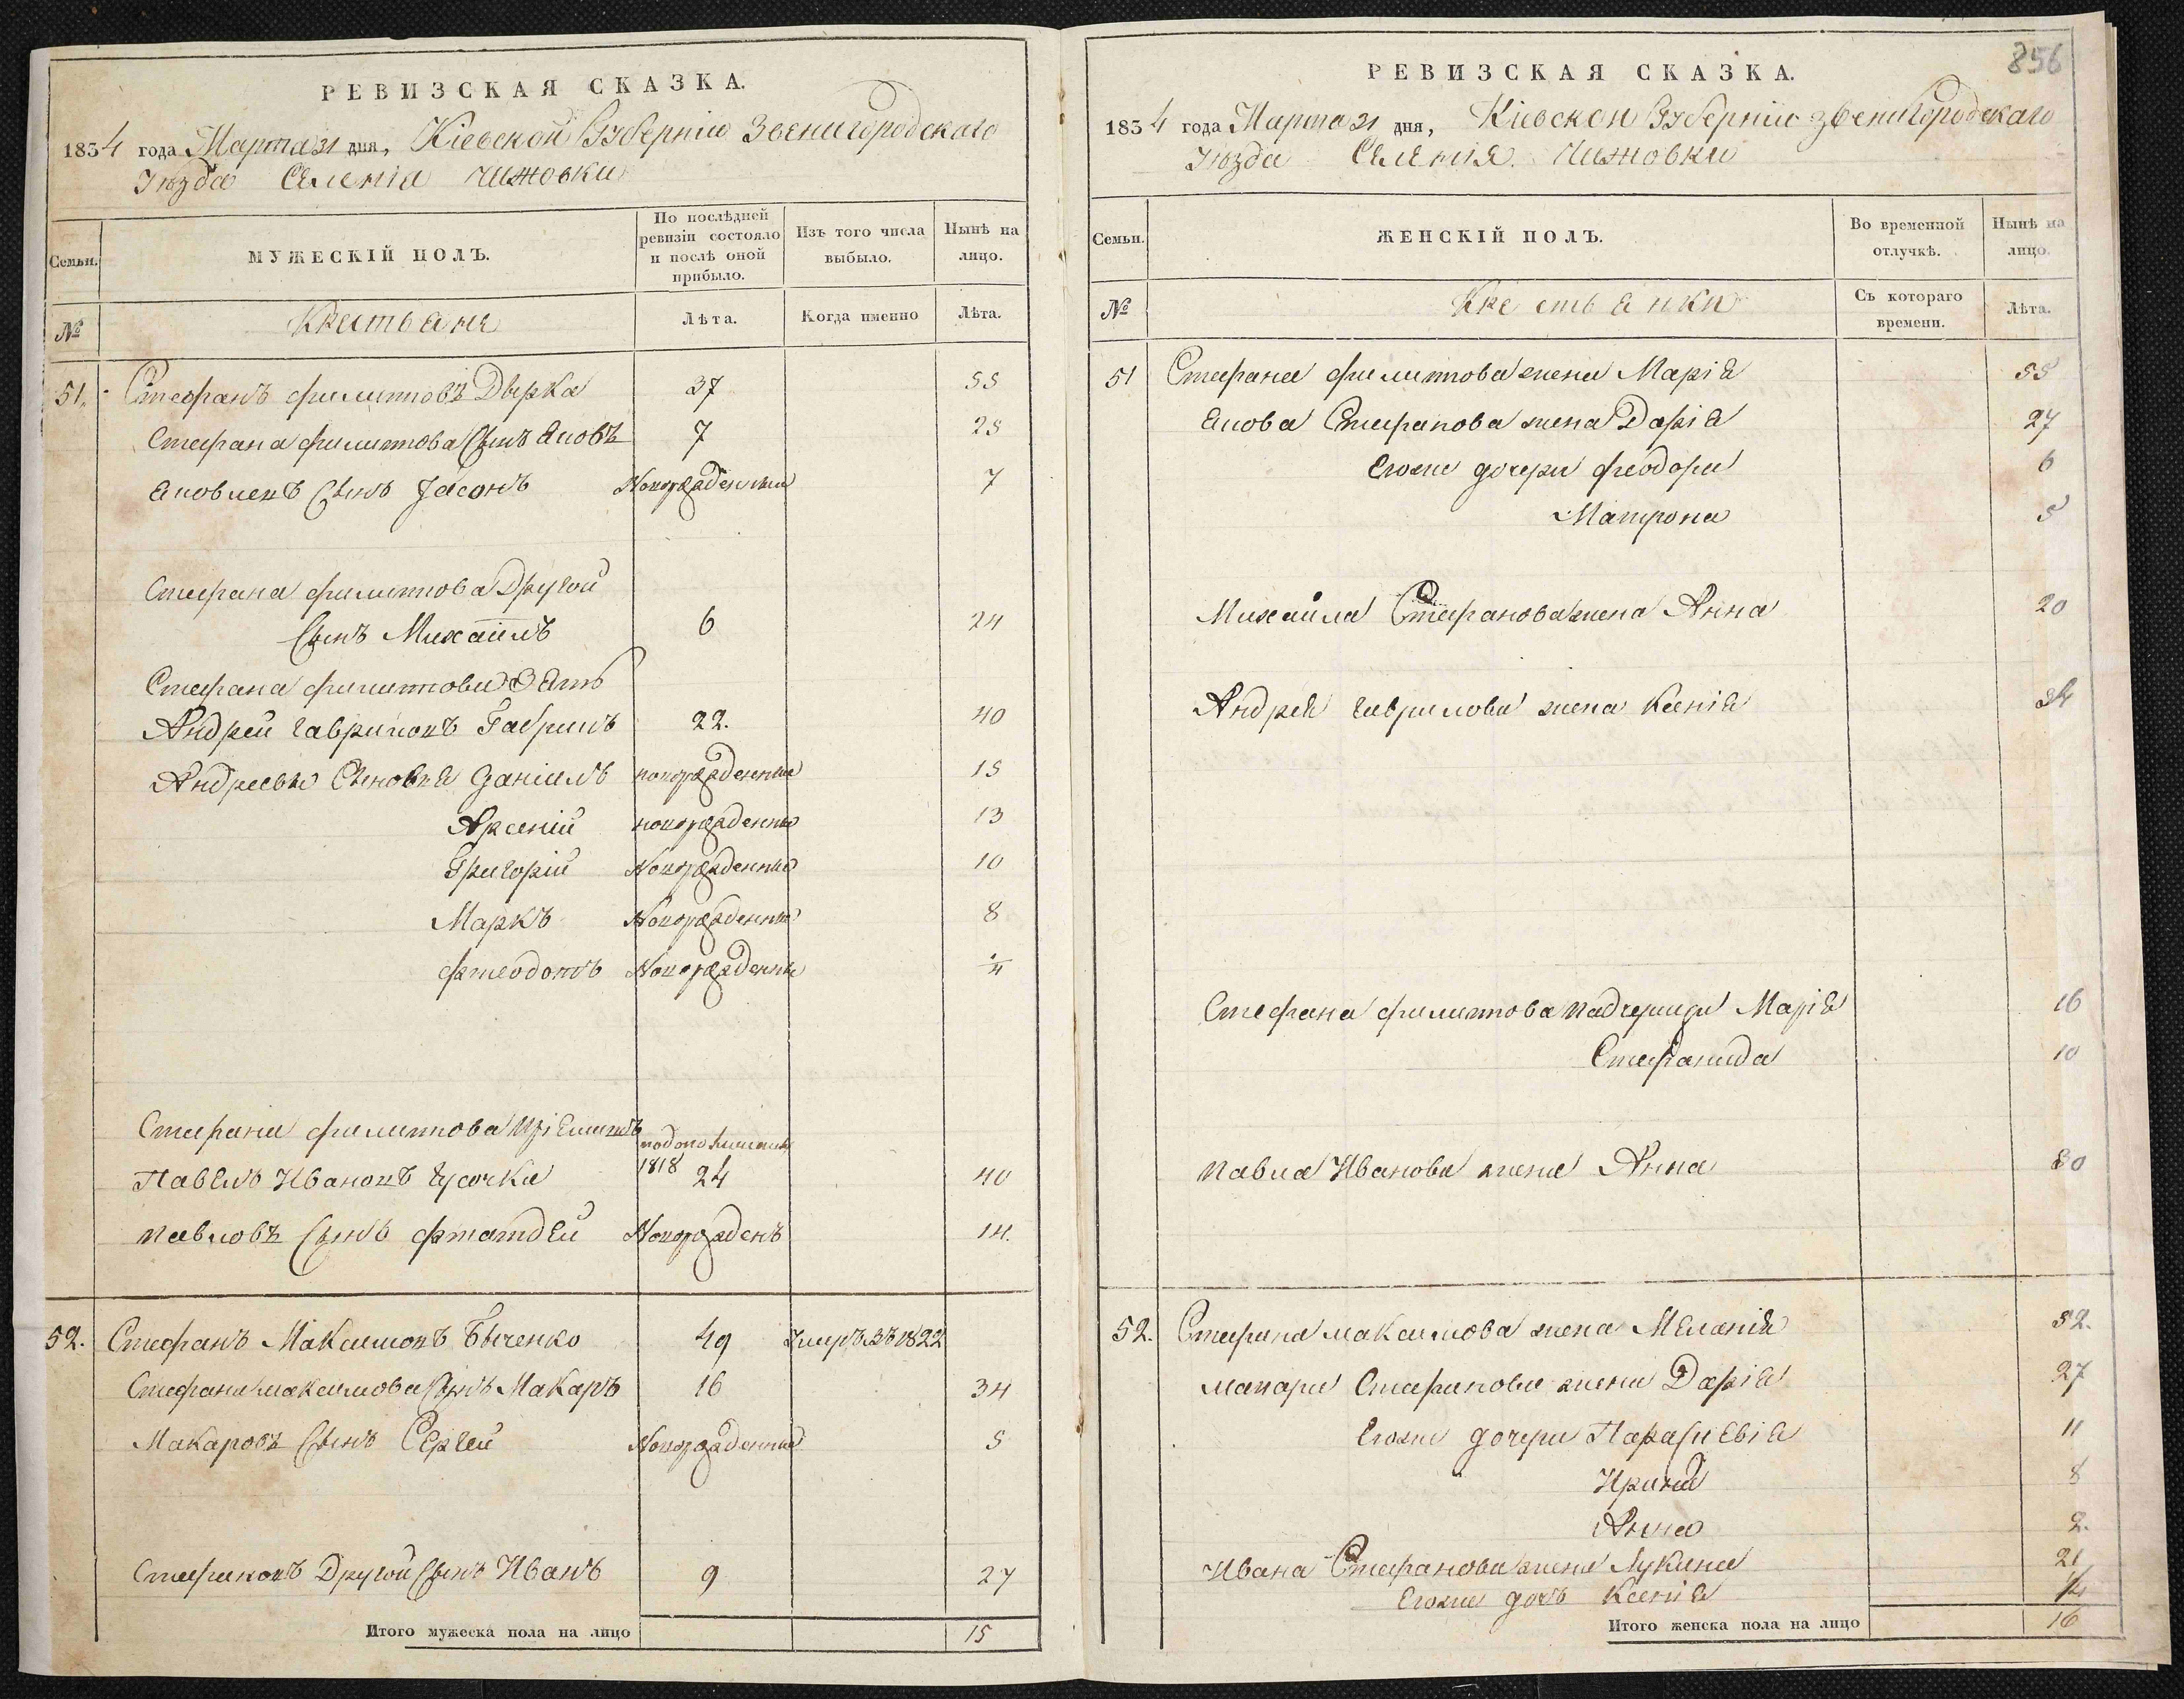 РЕВИЗСКАЯ СКАЗКА.
1834 года Марта 31 дня, Кіевской Губерніи Звенигородскаго
Уѣзда Селенія Чижовки
Семьи.
МУЖЕСКІЙ ПОЛЪ.
По послѣдней ревизіи состояло и послѣ оной прибыло.
Изъ того числа выбыло.
Нынѣ на лицо.
№
Крестьяне
Лѣта.
Когда именно
Лѣта.
51. Стефанъ филиповъ Дырка 37 55
Стефана филипова Сынъ Яковъ 7 25
Яковлевъ Сынъ Іасонъ Новорожденный 7
Стефана филипова Другой
Сынъ Михаилъ 6 24
Стефана филипова Зять
Андрей Гавриловъ Гаврилъ 22. 40
Андреевы Сыновья Даніилъ новорожденный 15
Арсеній новорожденный 13
Григорій Новорожденный 10
Маркъ Новорожденный 8
Новорожденный
Стефана филипова
1818
Павелъ Ивановъ 24 40
Павловъ Сынъ Новорожденъ 14.
52. Стефанъ Максимовъ Быченко 49 Умеръ въ 1822
Стефана Максимова Сынъ Макаръ 16 34
Макаровъ Сынъ Сергей Новорожденный 5
Стефановъ Другой Сынъ Иванъ 9 27
Итого мужеска пола на лицо 15
856
РЕВИЗСКАЯ СКАЗКА.
1834 года Марта 31 дня, Кіевской Губерніи Звенигородскаго
Уѣзда Селенія Чижовки
Семьи.
ЖЕНСКІЙ ПОЛЪ.
Во временной отлучкѣ.
Нынѣ на лицо.
№
Крестьянки
Съ котораго времени.
Лѣта.
51 Стефана филипова жена Марія 55
Якова Стефанова жена Дарія 27
Егоже дочери феодора 6
Матрона 5
Михаила Стефанова жена Анна 20
Андрея Гаврилова жена Ксенія
Стефана филипова падчерици Марія 16
Стефанида 10
Павла Иванова жена Анна
52. Стефана Максимова жена Меланія
Макара Стефанова жена Дарія 27
Егоже дочери Параскевія 11
Ирина 8
Анна 2.
Ивана Стефанова жена Лукина 21
Егоже дочь Ксенія
Итого женска пола на лицо 16